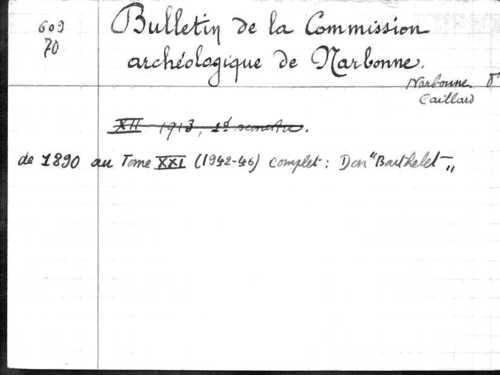 603
70
Bulletin de la Commission
archéologique de Narbonne.
Narbonne
Caillard
XII 1913, 1er semestre.
de 1890 au Tome XXI (1942-46) complet : Don "Barthelet"